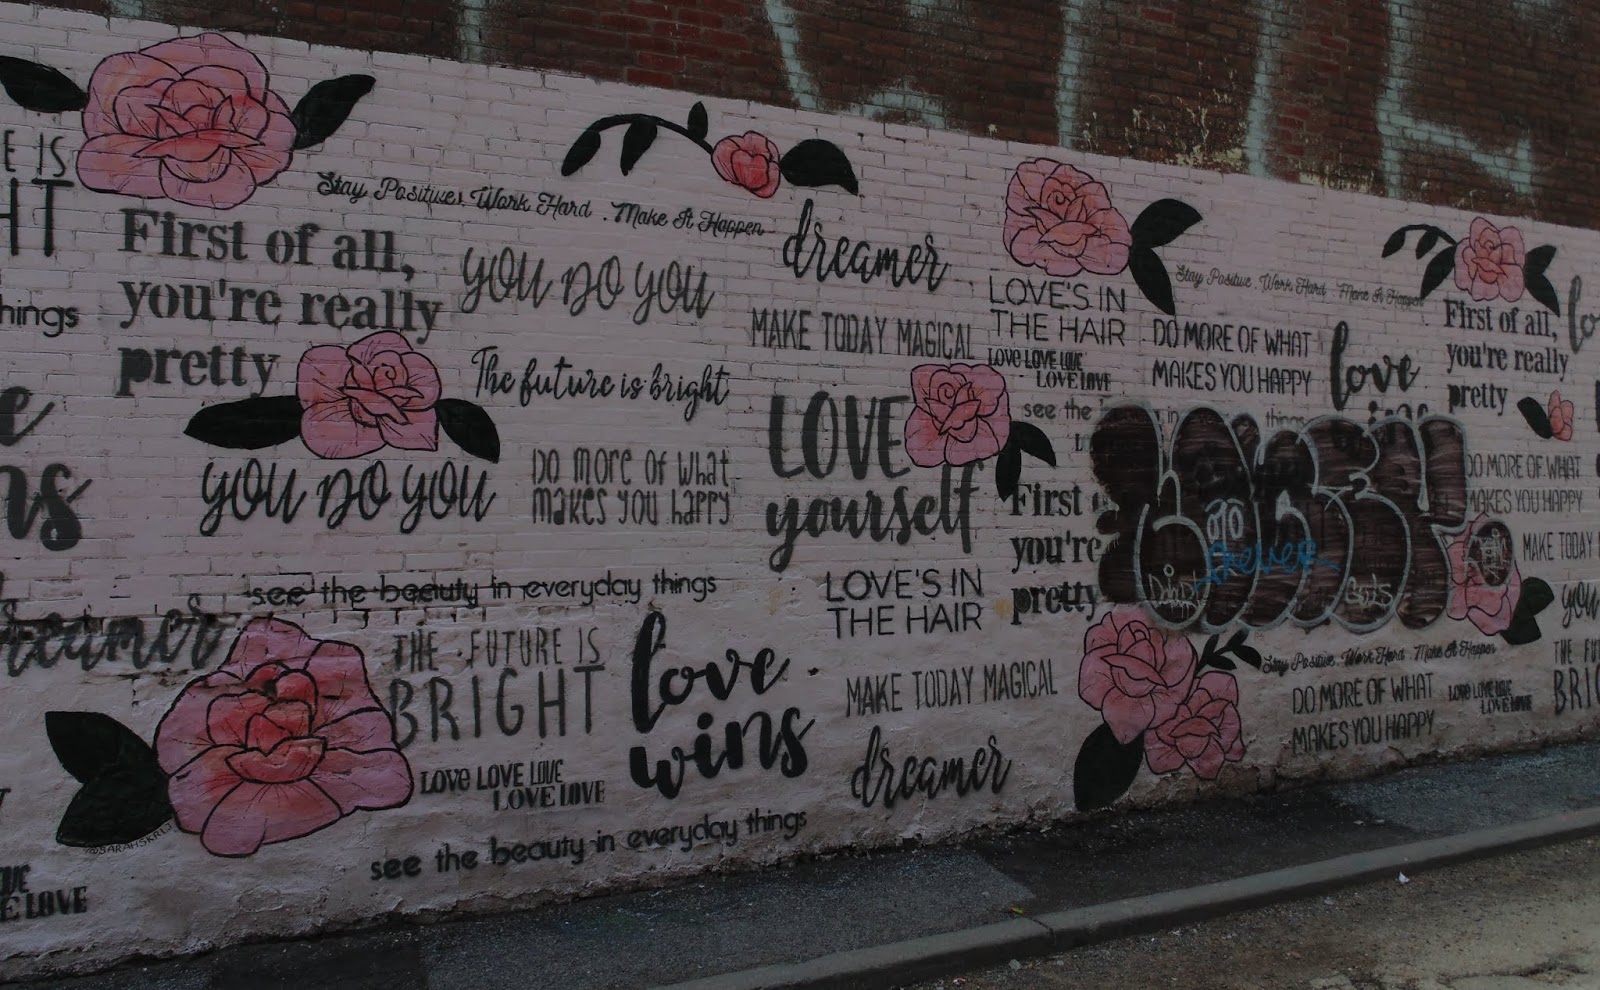 E IS
HT
hings
First of all,
you're really
pretty
Stay Positive. Work Hard . Make It Happen
YOU DO YOU
dreamer
MAKE TODAY MAGICAL
The future is bright
LOVE'S IN
THE HAIR
LOVE LOVE LOVE
LOVE LOVE
Stay Positive . Work Hard . Make It Happen
DO MORE OF WHAT
MAKES YOU HAPPY
love
First of all,
you're really
pretty
see the
things
YOU DO YOU
DO MORE OF WHAT
MAKES YOU HAPPY
LOVE
yourself
First
you're
pretty
DO MORE OF WHAT
MAKES YOU HAPPY
MAKE TODAY
you
THE FU
BRI
see the beauty in everyday things
LOVE'S IN
THE HAIR
dreamer
THE FUTURE IS
BRIGHT
love
wins
MAKE TODAY MAGICAL
dreamer
Stay Positive . Work Hard . Make It Happen
DO MORE OF WHAT
MAKES YOU HAPPY
LOVE LOVE LOVE
LOVE LOVE
LOVE LOVE LOVE
LOVE LOVE
see the beauty in everyday things
E LOVE